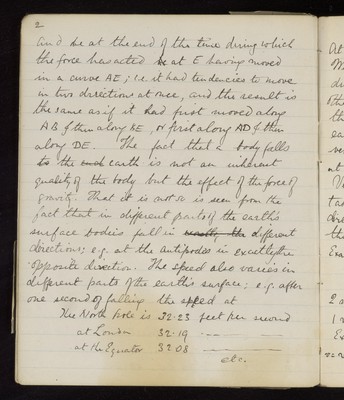 2
and be at the end of the time during which
the force has acted be at E having moved
in a curve AE; i.e. it had tendencies to move
in two directions at once, and the result is
the same as if it had first moved along
AB & then along BE, or first along AD & then
along DE. The fact that a body falls
to the earth is not an inherent
quality of the body but the effect of the force of
gravity. That it is not so is seen from the
fact that in different parts of the earth's
surface bodies fall in exactly the different
directions; e.g. at the antipodes in exactly the
opposite direction. The speed also varies in
different parts of the earth's surface; e.g. after
one second of falling the speed at
The North Pole is 32.23 feet per second
at London 32.19 —
at the Equator 32.08 —
etc.